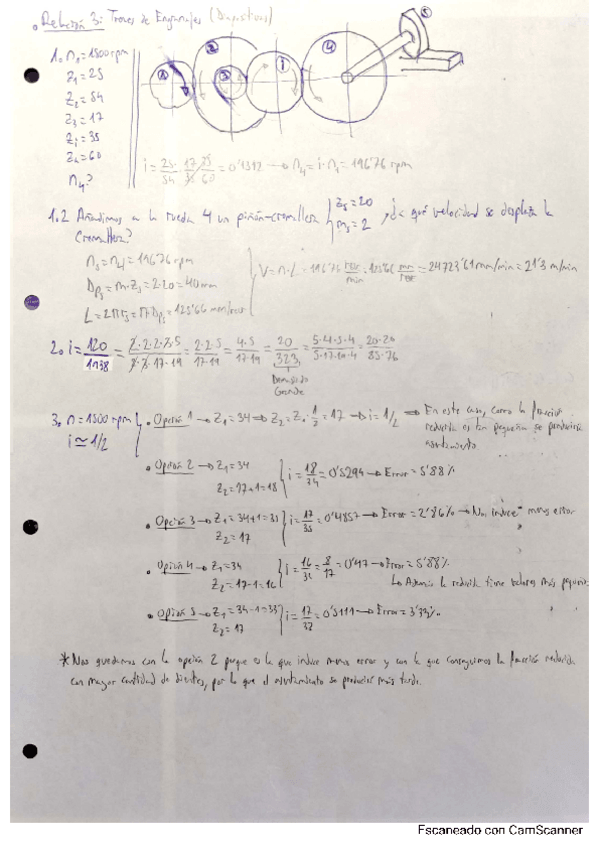 Relación 3: Trenes de Engranajes (Diapositivas)
1. n₁ = 1500 rpm
Z₁ = 25
Z₂ = 54
Z₃ = 17
Zᵢ = 35
Z₄ = 60
n₄?
1 2 3 i 4 5
i = 25/54 · 17/35 · 35/60 = 0'1312 → n₄ = i · n₁ = 196'76 rpm
1.2 Añadimos a la rueda 4 un piñón-cremallera { Z₅ = 20 m₅ = 2 , ¿a qué velocidad se desplaza la
cremallera?
n₅ = n₄ = 196'76 rpm
Dp₅ = m · Z₅ = 2 · 20 = 40 mm
L = 2πr₅ = πDp₅ = 125'66 mm/rev
V = n · L = 196'76 rev/min · 125'66 mm/rev = 24723'61 mm/min = 21'3 m/min
2. i = 120/1938 = 2·2·2·3·5/2·3·17·19 = 2·2·5/17·19 = 4·5/17·19 = 20/323 = 5·4·5·4/5·17·19·4 = 20·20/85·76
Demasiado
Grande
3. n = 1500 rpm
i ≃ 1/2
Opción 1 → Z₁ = 34 → Z₂ = Z₁ · 1/2 = 17 → i = 1/2 → En este caso, como la fracción
reducida es tan pequeña se produciría
asentamiento
Opción 2 → Z₁ = 34
Z₂ = 17+1 = 18
i = 18/34 = 0'5294 → Error = 5'88%
Opción 3 → Z₁ = 34+1 = 35
Z₂ = 17
i = 17/35 = 0'4857 → Error = 2'86% → Nos induce menos error
Opción 4 → Z₁ = 34
Z₂ = 17-1 = 16
i = 16/34 = 8/17 = 0'47 → Error = 5'88%
↳ Además la reducida tiene valores más pequeños
Opción 5 → Z₁ = 34-1 = 33
Z₂ = 17
i = 17/33 = 0'5111 → Error = 3'33%
* Nos quedamos con la opción 2 porque es la que induce menos error y con la que conseguimos la fracción reducida
con mayor cantidad de dientes, por lo que el asentamiento se producirá más tarde.
Escaneado con CamScanner